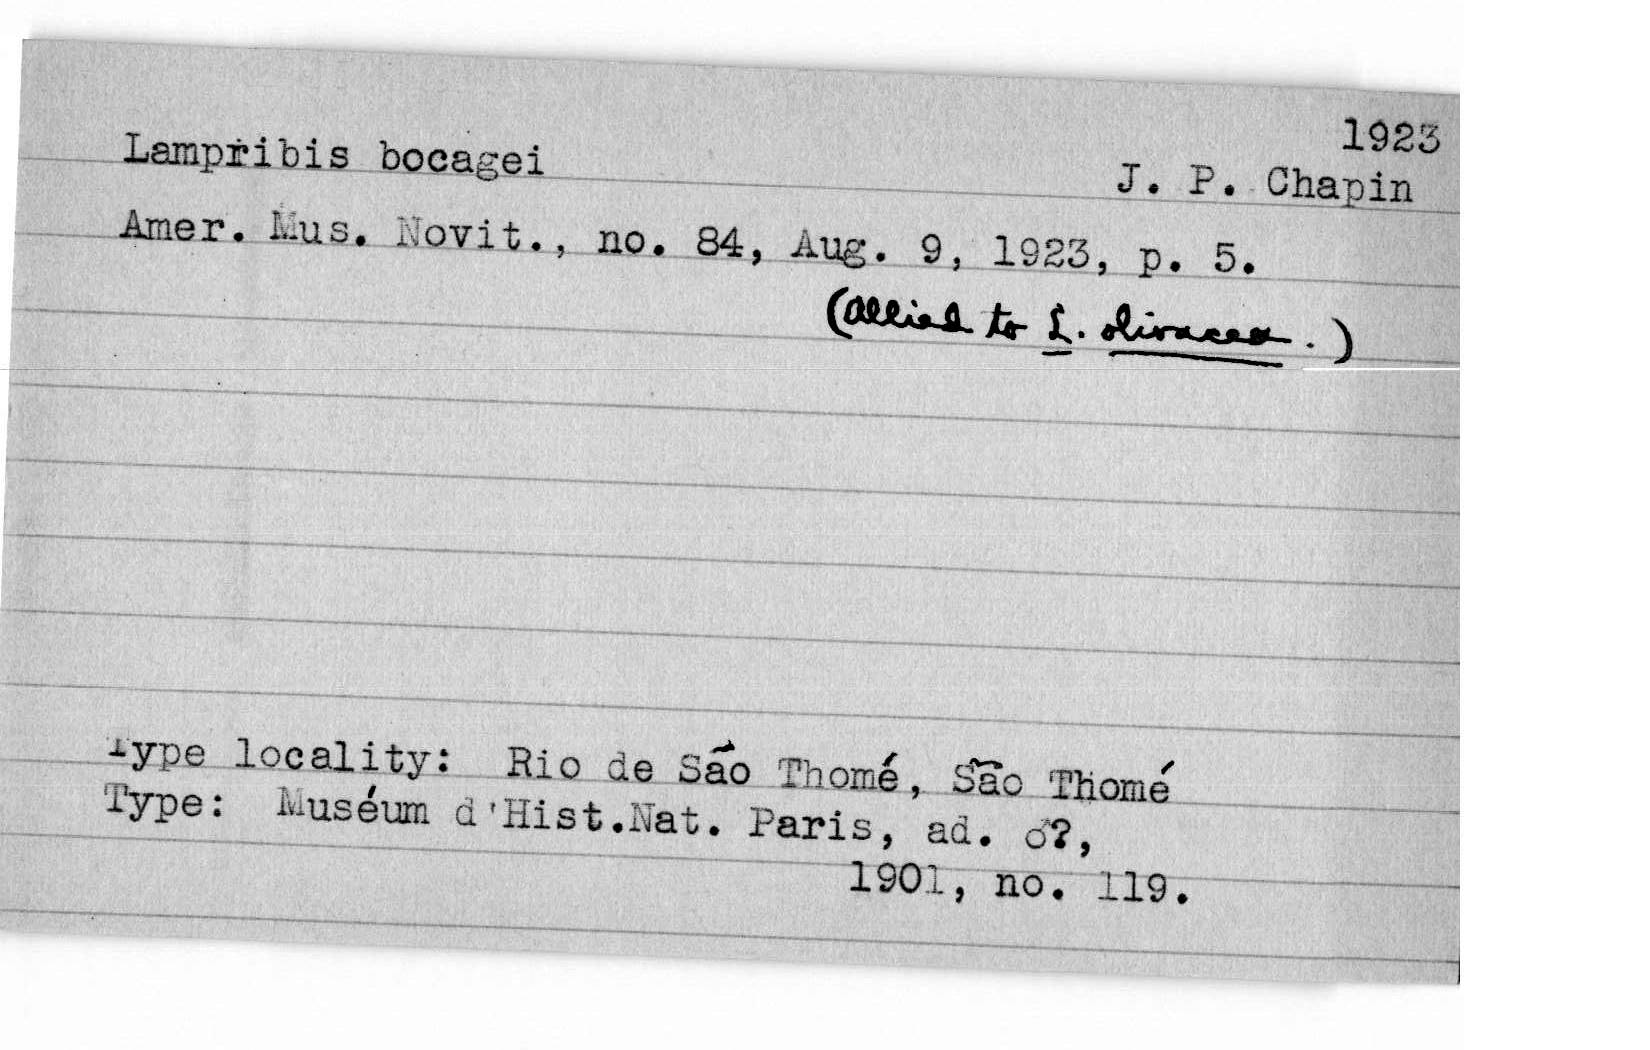 1923
Lampribis bocagei
J. P. Chapin
Amer. Mus. Novit., no. 84, Aug. 9, 1923, p. 5.
(Allied to L. olivacea.)
Type locality: Rio de São Thomé, São Thomé
Type: Muséum d'Hist.Nat. Paris, ad. ♂?,
1901, no. 119.